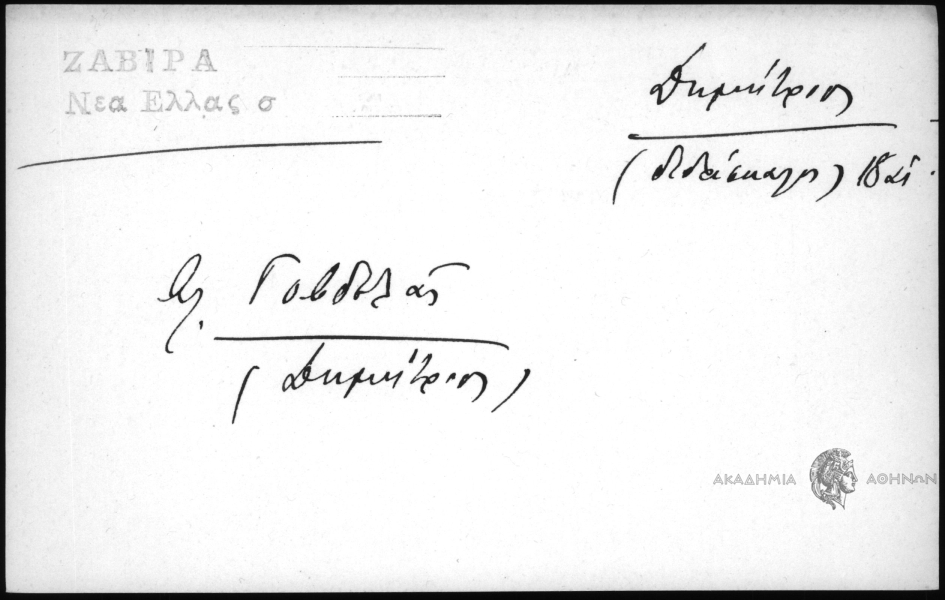 ΖΑΒΙΡΑ
Νεα Ελλας σ
Δημήτριος
(διδάσκαλος) 18 αἰ.
Γοβδελᾶς
(Δημήτριος)
ΑΚΑΔΗΜΙΑ ΑΘΗΝΩΝ